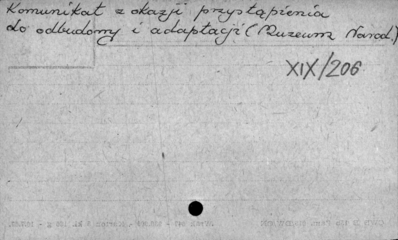 Komunikat z okazji przystąpienia
do odbudowy i adaptacji (Muzeum Narod.)
XIX/206